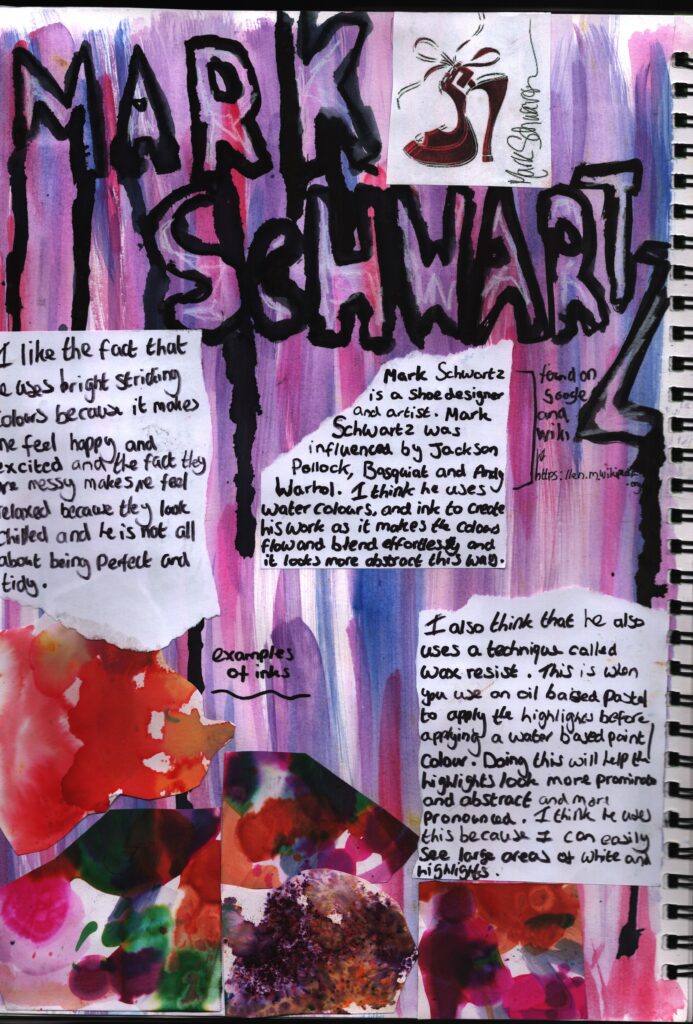 MARK
SCHWARTZ
Mark Schwartz
I like the fact that
e uses bright striding
colours because it makes
me feel happy and
excited and the fact they
re messy makes me feel
relaxed because they look
chilled and he is not all
about being perfect and
tidy.
Mark Schwartz
is a shoe designer
and artist. Mark
Schwartz was
influenced by Jackson
Pollock, Basquiat and Andy
Warhol. I think he uses
water colours, and ink to create
his work as it makes the colours
flow and blend effortlessly and
it looks more abstract this way.
found on
Google
and
wiki
https://en.m.wikipedia
.org
examples
of inks
I also think that he also
uses a technique called
wax resist. This is when
you use an oil baised pastel
to apply the highlighes before
applying a water based paint/
colour. Doing this will help the
highlights look more prominate
and abstract and more
pronounced. I think he uses
this because I can easily
see large areas of white and
highlights.